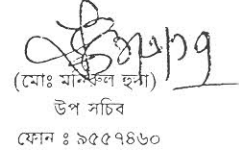 (মোঃ মনিরুল হুদা)
উপ সচিব
ফোন ঃ ৯৫৫৭৪৬০